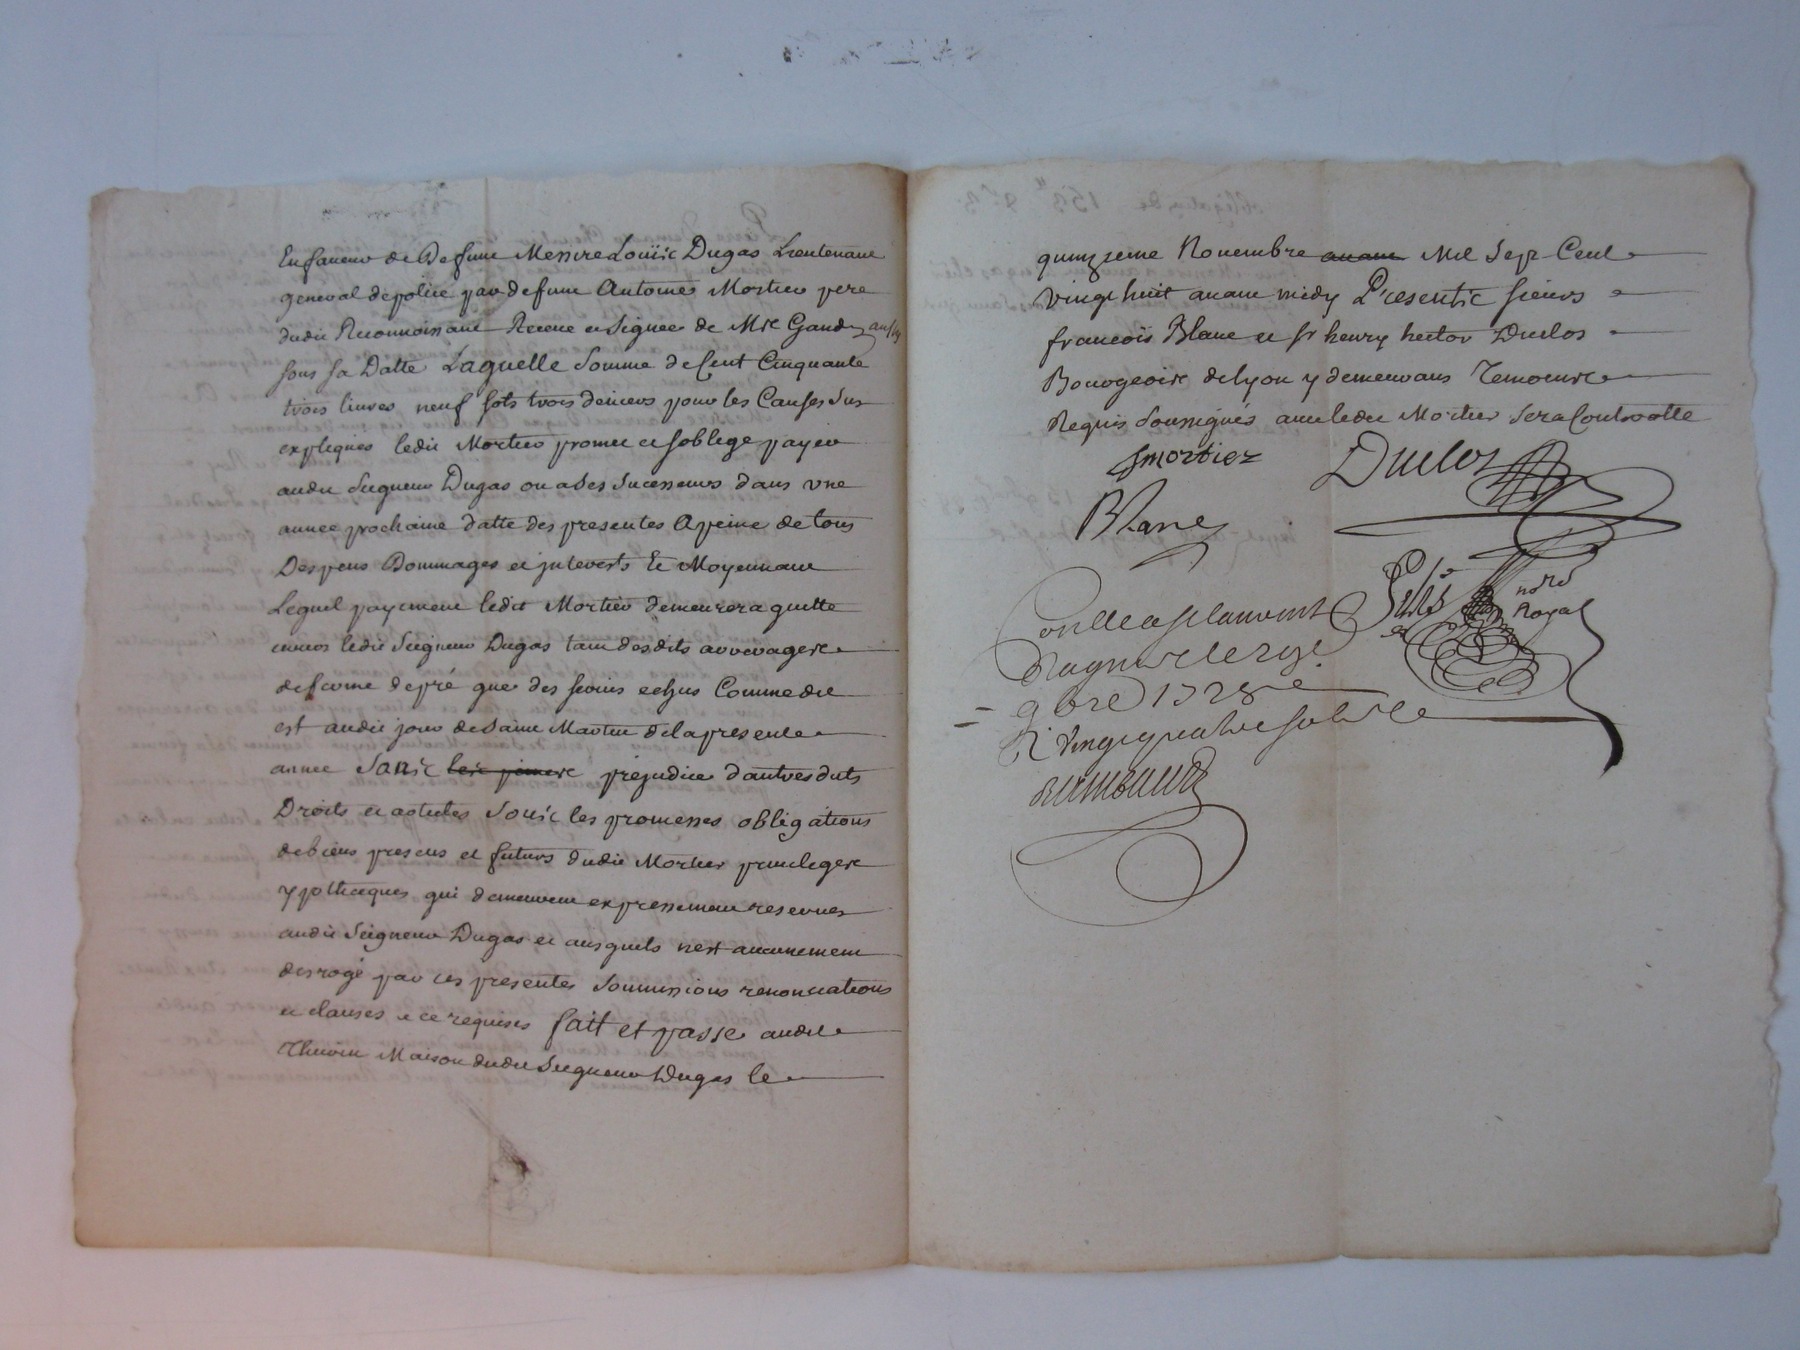 En faveur de Deffunt Messire Loüis Dugas Lieutenant
general de police par deffunt Antoine Mortier pere
dudit Reconnoissant Receue et Signée de Mre Gandy aussy
sous sa Datte Laquelle Somme de Cent Cinquante
trois livres neuf sols trois deniers pour les Causes Sus
expliquées ledit Mortier promet et soblige payer
audit Seigneur Dugas ou a Ses Sucesseurs dans une
année prochaine datte des presentes A peine de tous
Despens Dommages et interests Et Moyennant
Lequel payement ledit Mortier demeurera quitte
envers ledit Seigneur Dugas tant desdits arrerages
de ferme de pré que des servis echus Comme dit
est audit jour de Saint Martin de la presente
année Sans prejudice dautres duts
Droits et actules Sous les promesses obligations
de biens presens et futurs dudit Mortier privileges
ypotheques qui demeurent expressement reservés
audit Seigneur Dugas et ausquels nest aucunement
desrogé par ces presentes Soumissions renonciations
et clauses a ce requises fait et passé audit
Thurin Maison dudit Seigneur Dugas le
quinzieme Novembre avant Mil Sept Cent
vingt huit avant midy Presents sieurs
françois Blanc et sr henry hector Duclos
Bourgeois de Lyon y demeurans Temoins
Requis Soussignés avec ledit Mortier Sera Controolle
Mortier Duclos
Blanc
nore
Royal
Conlle a St Laurent
9bre 1728
R vingt quatre sols